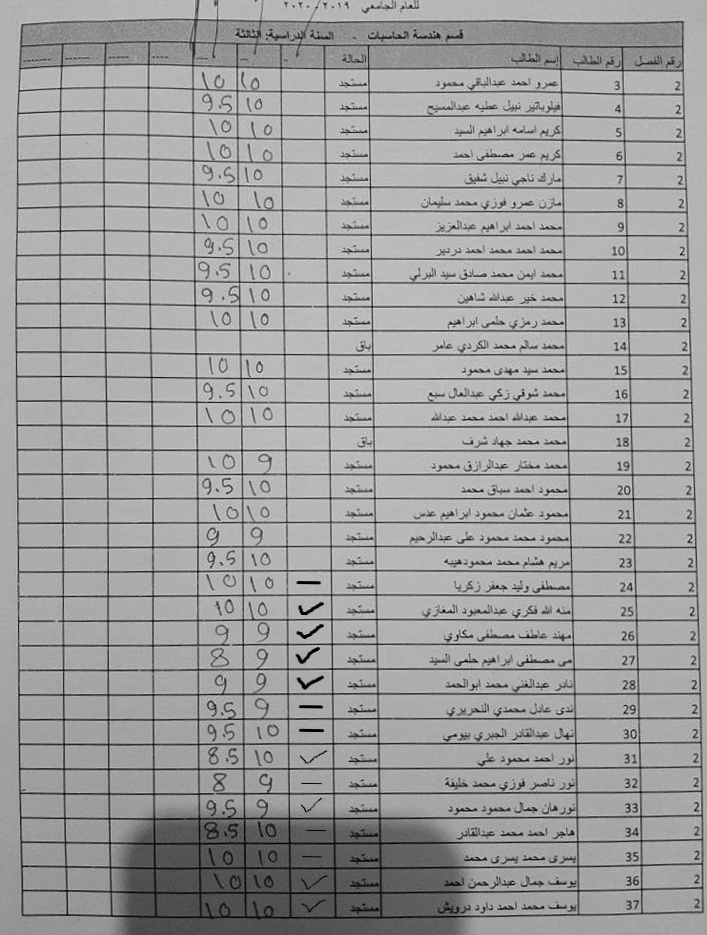 للعام الجامعي ٢٠١٩ - ٢٠٢٠
قسم هندسة الحاسبات - السنة الدراسية: الثالثة
رقم الفصل رقم الطالب إسم الطالب الحالة
2 3 عمرو احمد عبدالباقي محمود مستجد 10 10
2 4 فيلوباتير نبيل عطيه عبدالمسيح مستجد 10 9.5
2 5 كريم اسامه ابراهيم السيد مستجد 10 10
2 6 كريم عمر مصطفى احمد مستجد 10 10
2 7 مارك ناجي نبيل شفيق مستجد 10 9.5
2 8 مازن عمرو فوزي محمد سليمان مستجد 10 10
2 9 محمد احمد ابراهيم عبدالعزيز مستجد 10 10
2 10 محمد احمد محمد احمد دردير مستجد 10 9.5
2 11 محمد ايمن محمد صادق سيد البرلي مستجد 10 9.5
2 12 محمد خير عبدالله شاهين مستجد 10 9.5
2 13 محمد رمزي حلمى ابراهيم مستجد 10 10
2 14 محمد سالم محمد الكردي عامر باق
2 15 محمد سيد مهدى محمود مستجد 10 10
2 16 محمد شوقي زكي عبدالعال سبع مستجد 10 9.5
2 17 محمد عبدالله احمد محمد عبدالله مستجد 10 10
2 18 محمد محمد جهاد شرف باق
2 19 محمد مختار عبدالرازق محمود مستجد 9 10
2 20 محمود احمد سباق محمد مستجد 10 9.5
2 21 محمود عثمان محمود ابراهيم عدس مستجد 10 10
2 22 محمود محمد محمود على عبدالرحيم مستجد 9 9
2 23 مريم هشام محمد محمودهيبه مستجد 10 9.5
2 24 مصطفى وليد جعفر زكريا مستجد – 10 10
2 25 منه الله فكري عبدالمعبود المغازي مستجد ✓ 10 10
2 26 مهند عاطف مصطفى مكاوي مستجد ✓ 9 9
2 27 مى مصطفى ابراهيم حلمى السيد مستجد ✓ 9 8
2 28 نادر عبدالغني محمد ابوالحمد مستجد ✓ 9 9
2 29 ندى عادل محمدي النحريري مستجد – 9 9.5
2 30 نهال عبدالقادر الجبري بيومي مستجد – 10 9.5
2 31 نور احمد محمود علي مستجد ✓ 10 8.5
2 32 نور ناصر فوزي محمد خليفة مستجد – 9 8
2 33 نورهان جمال محمود محمود مستجد ✓ 9 9.5
2 34 هاجر احمد محمد عبدالقادر مستجد – 10 8.5
2 35 يسرى محمد يسرى محمد مستجد – 10 10
2 36 يوسف جمال عبدالرحمن احمد مستجد ✓ 10 10
2 37 يوسف محمد احمد داود درويش مستجد ✓ 10 10